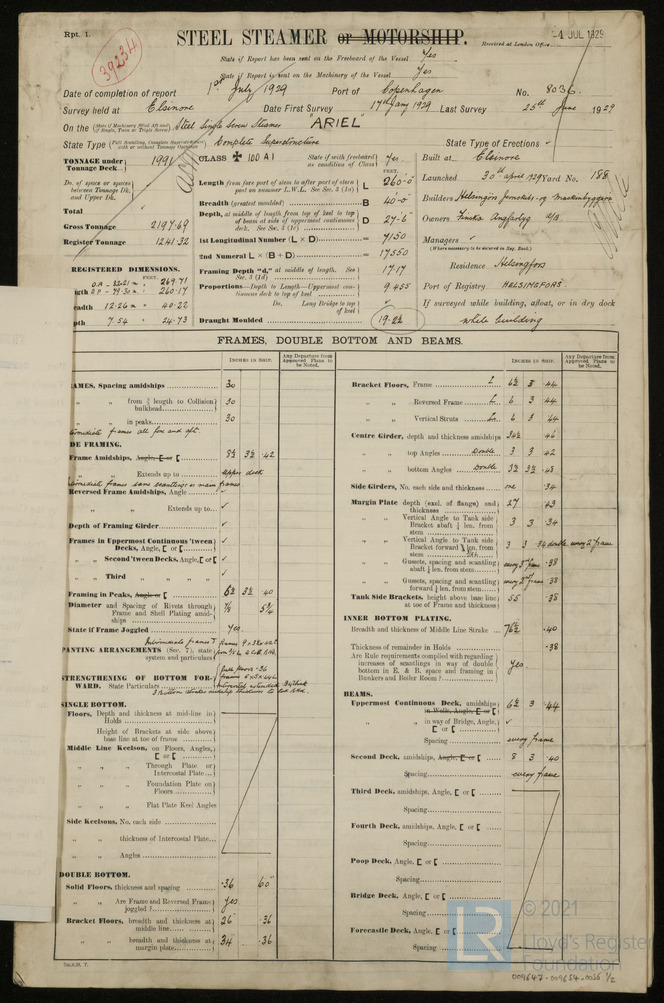 Rpt. 1.
STEEL STEAMER or MOTORSHIP.
Received at London Office
-4 JUL 1929
39234
State if Report has been sent on the Freeboard of the Vessel Yes
State if Report is sent on the Machinery of the Vessel Yes
Date of completion of report 1st July 1929 Port of Copenhagen No. 8036.
Survey held at Elsinore Date First Survey 17th Jany 1929 Last Survey 25th June 1929
On the (State if Machinery fitted Aft and if Single, Twin or Triple Screw) Steel Single Screw Steamer "ARIEL"
State Type Complete Superstructure State Type of Erections
TONNAGE under Tonnage Deck 1991
CLASS ✠ 100 A1 State if with freeboard as condition of Class Yes
Built at Elsinore
Do. of space or spaces between Tonnage Dk. and Upper Dk.
Total
Gross Tonnage 2197.69
Register Tonnage 1241.32
FEET.
Length (from fore part of stem to after part of stern post on summer L.W.L. See Sec. 3 (1a) L 260-0
Breadth (greatest moulded) B 40-0
Depth, at middle of length from top of keel to top of beam at side of uppermost continuous deck. See Sec. 3 (1c) D 27-6
1st Longitudinal Number (L × D) = 7150
2nd Numeral L × (B + D) = 17550
Framing Depth "d," at middle of length. See Sec. 3 (1d) 17.17
Proportions—Depth to Length—Uppermost continuous deck to top of keel 9.455
Do. Long Bridge to top of keel
Draught Moulded 19-2½
Launched 30th april 1929 Yard No. 188
Builders Helsingörs Jernskibs- og Maskinbyggeri
Owners Finska Ångfartyg A/B
Managers
(Where necessary to be entered in Reg. Book)
Residence Helsingfors
Port of Registry HELSINGFORS
If surveyed while building, afloat, or in dry dock
while building
REGISTERED DIMENSIONS.
FEET.
269.71
260.17
eadth 12.26 m 40.22
pth 7.54 24.73
FRAMES, DOUBLE BOTTOM AND BEAMS.
INCHES IN SHIP.
Any Departure from Approved Plans to be Noted.
INCHES IN SHIP.
Any Departure from Approved Plans to be Noted.
AMES, Spacing amidships 30
" " from ⅗ length to Collision bulkhead 30
" " in peaks 30
DE FRAMING.
Frame Amidships, Angle, E or [ 8½ 3½ .42
" " Extends up to upper deck
Intermediate frames same scantlings as main frames
Reversed Frame Amidships, Angle
" " Extends up to
Depth of Framing Girder
Frames in Uppermost Continuous 'tween Decks, Angle, [ or [
" " Second 'tween Decks, Angle, [ or [
" " Third " " " "
Framing in Peaks, Angle or [ 6½ 3½ 40
Diameter and Spacing of Rivets through Frame and Shell Plating amidships ⅞ 5¼
State if Frame Joggled Yes
PANTING ARRANGEMENTS (Sec. 7), state system and particulars
STRENGTHENING OF BOTTOM FORWARD. State Particulars
SINGLE BOTTOM.
Floors, Depth and thickness at mid-line in Holds
Height of Brackets at side above base line at toe of frame
Middle Line Keelson, on Floors, Angles, [ or [
" " Through Plate or Intercostal Plate
" " Foundation Plate on Floors
" " Flat Plate Keel Angles
Side Keelsons, No. each side
" " thickness of Intercostal Plate
" " Angles
DOUBLE BOTTOM.
Solid Floors, thickness and spacing .36 60
" " Are Frame and Reversed Frame joggled? Yes
Bracket Floors, breadth and thickness at middle line 26 .36
" " breadth and thickness at margin plate 34 .36
Bracket Floors, Frame L 6½ 3 .44
" " Reversed Frame L 6 3 .44
" " Vertical Struts L 6 3 .44
Centre Girder, depth and thickness amidships 34½ .46
" " top Angles Double 3 3 .42
" " bottom Angles Double 3½ 3½ .48
Side Girders, No. each side and thickness one .34
Margin Plate depth (excl. of flange) and thickness 27 .43
" " Vertical Angle to Tank side Bracket abaft ¼ len. from stem 3 3 .34
" " Vertical Angle to Tank side Bracket forward ¼ len. from stem 3 3 .34 double every 2nd frame
" " Gussets, spacing and scantling abaft ¼ len. from stem every 3rd frame .38
" " Gussets, spacing and scantling forward ¼ len. from stem every 2nd frame .38
Tank Side Brackets, height above base line at toe of Frame and thickness 55 .38
INNER BOTTOM PLATING.
Breadth and thickness of Middle Line Strake 76½ .40
Thickness of remainder in Holds .38
Are Rule requirements complied with regarding increases of scantlings in way of double bottom in E. & B. space and framing in Bunkers and Boiler Room? Yes.
BEAMS.
Uppermost Continuous Deck, amidships in Wells, Angle, [ or [ 6½ 3 .44
" " in way of Bridge, Angle, [ or [
Spacing every frame
Second Deck, amidships, Angle, [ or [ 8 3 .40
Spacing every frame
Third Deck, amidships, Angle, [ or [
Spacing
Fourth Deck, amidships, Angle, [ or [
Spacing
Poop Deck, Angle, [ or [
Spacing
Bridge Deck, Angle, [ or [
Spacing
Forecastle Deck, Angle, [ or [
Spacing
LR
© 2021
Lloyd's Register
Foundation
009647-009654-0056 1/2